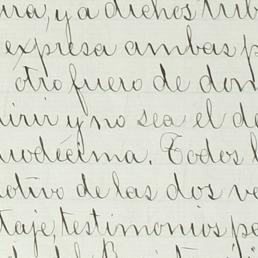 ura, y a dichos trib
expresa ambas p
otro fuero de dom
uirir y no sea el de
uodécima. Todos l
otivo de las dos ve
taje, testimonios pa